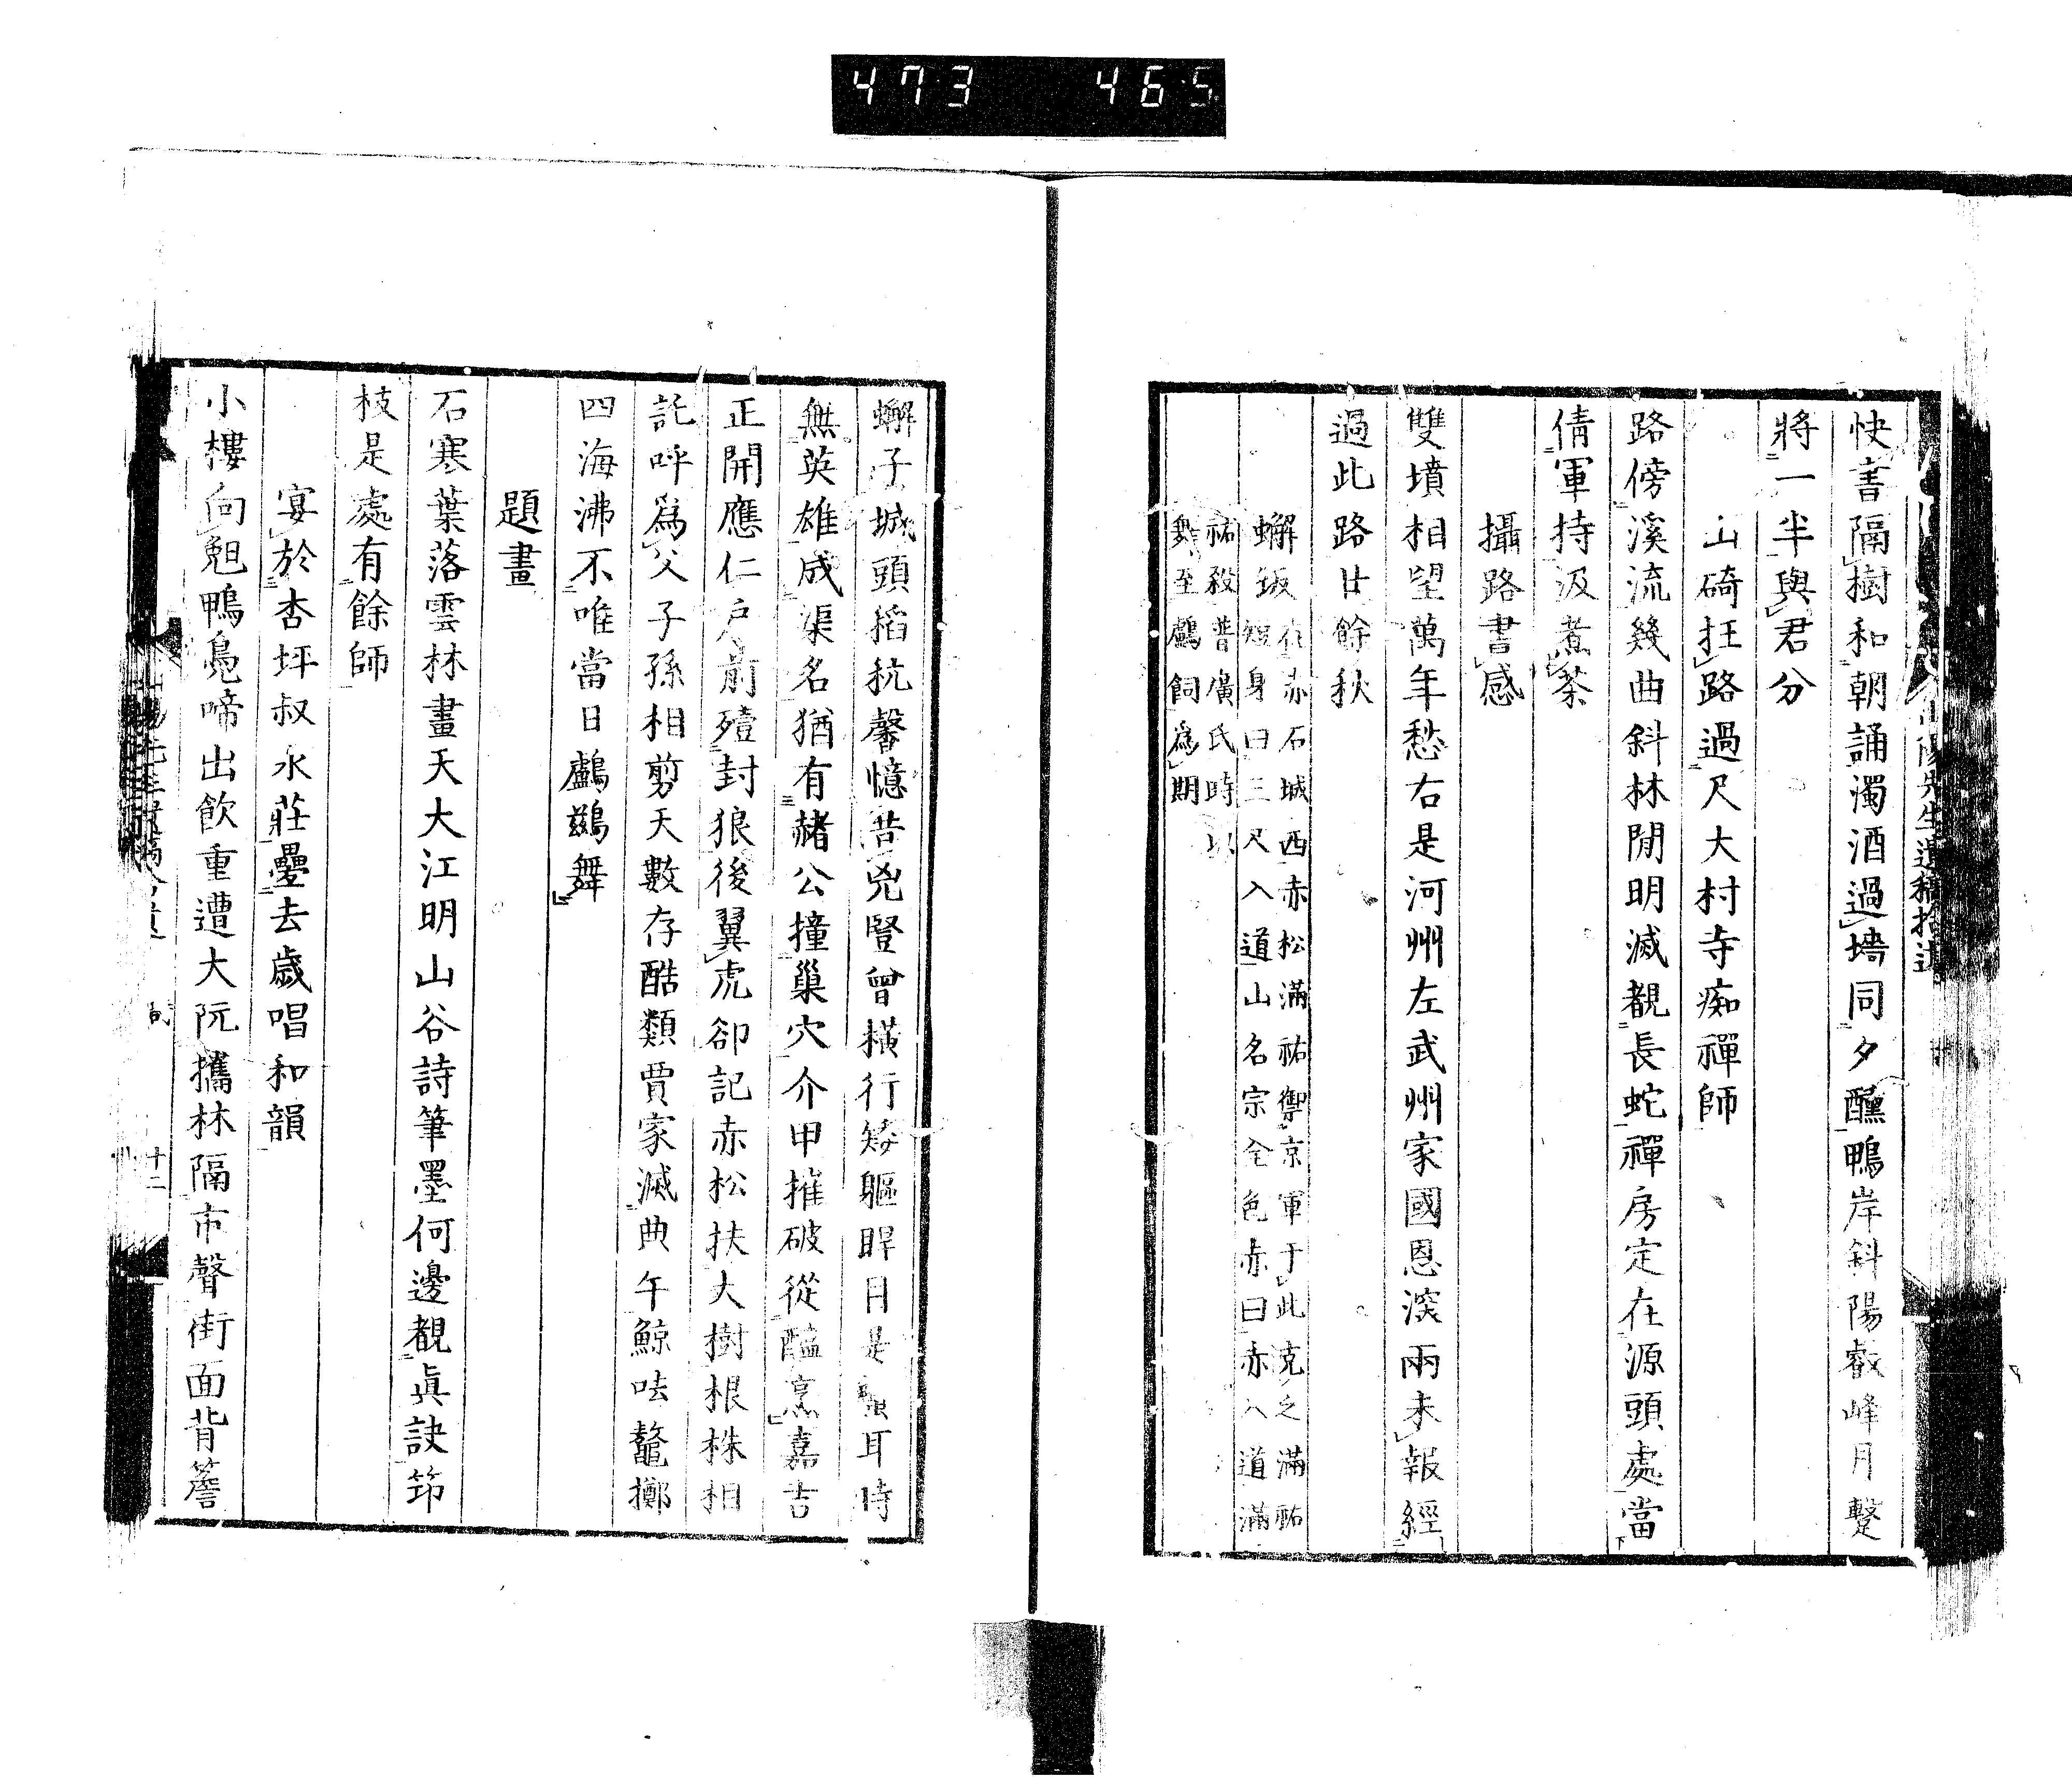 473 465
快書隔樹和朝誦濁酒過墻同夕醺鴨岸斜陽叡峰月蹔
將一半與君分
山碕抂路過尺大村寺痴禪師
路傍溪流幾曲斜林閒明滅覩長蛇禪房定在源頭處當
倩軍持汲煮茶
攝路書感
雙墳相望萬年愁右是河州左武州家國恩深兩未報經
過此路廿餘秋
蠏坂在赤石城西赤松滿祐禦京軍于此克之滿祐
短身曰三尺入道山名宗全色赤曰赤入道滿
祐弑普廣氏時以
舞至鸕飼爲期
蠏子城頭稻秔馨憶昔兇豎曾橫行矮軀睅目是蝨耳時
無英雄成渠名猶有赭公撞巢穴介甲摧破從醢烹嘉吉
正開應仁戶前殪封狼後翼虎卻記赤松扶大樹根株相
託呼爲父子孫相剪天數存酷類賈家滅典午鯨呿鼇擲
四海沸不唯當日鸕鷀舞
題畫
石寒葉落雲林畫天大江明山谷詩筆墨何邊覩眞訣笻
枝是處有餘師
宴於杏坪叔氷莊疊去歲唱和韻
小樓向兜鴨鳧啼出飮重遭大阮攜林隔市聲街面背簷
山陽先生遺稿拾遺
十二